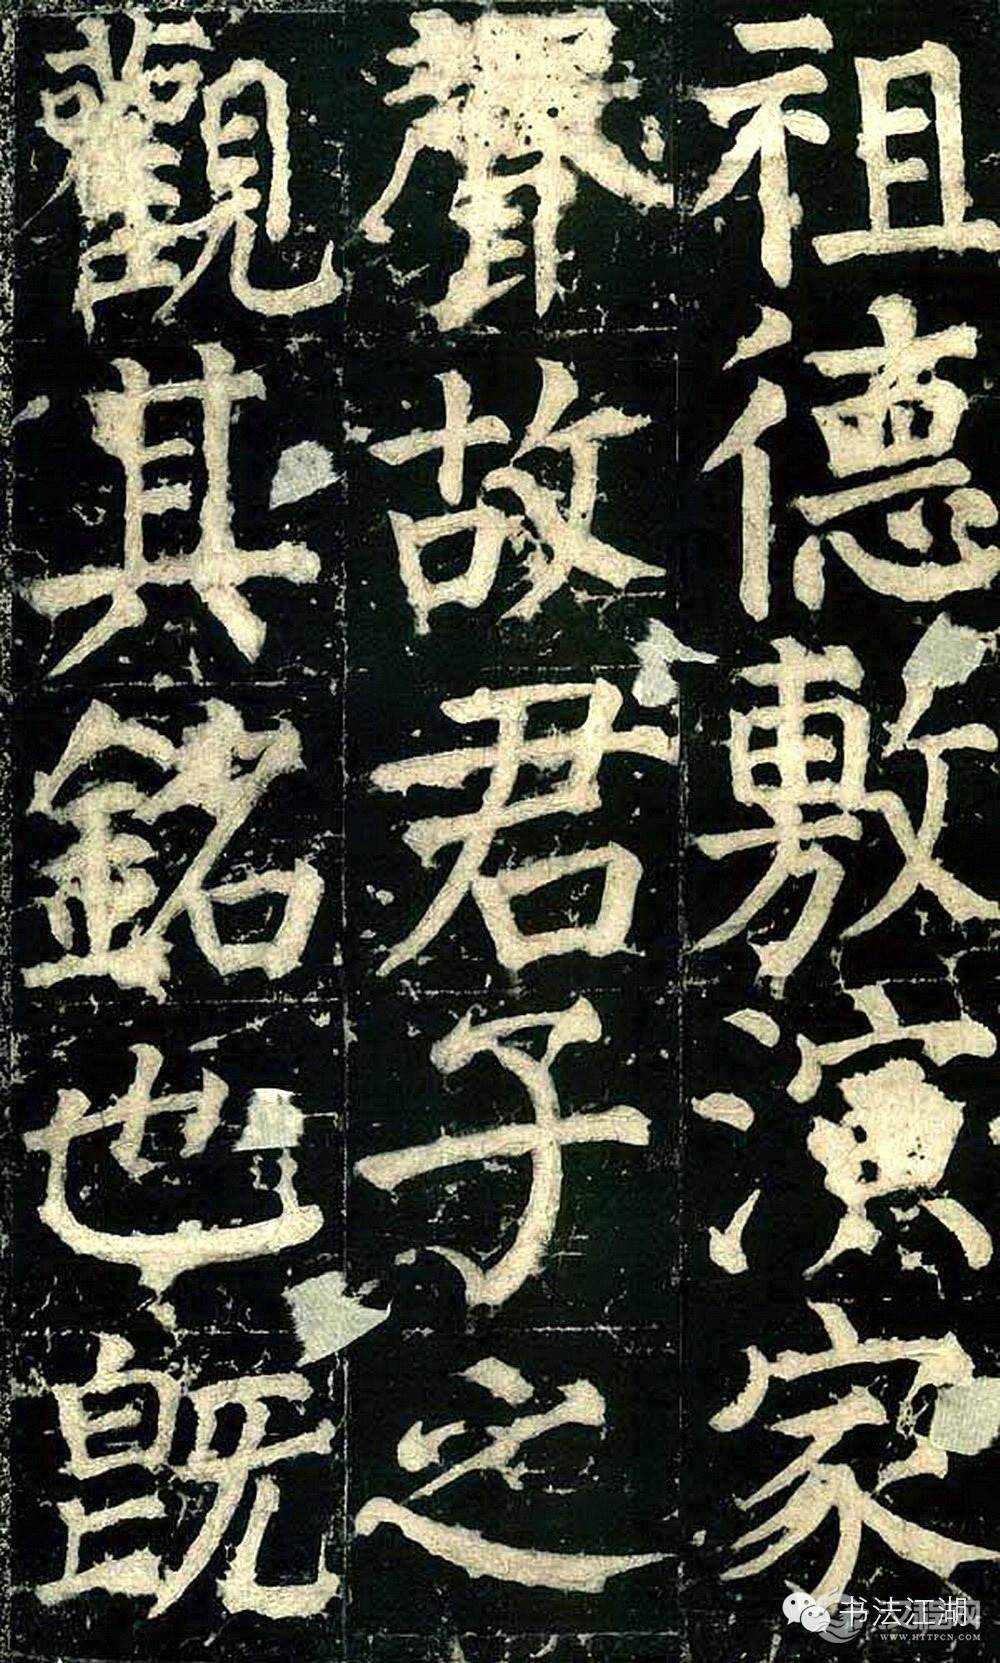 祖德敷演家
聲故君子之
觀其銘也既
书法江湖
WWW.HTTPCN.COM